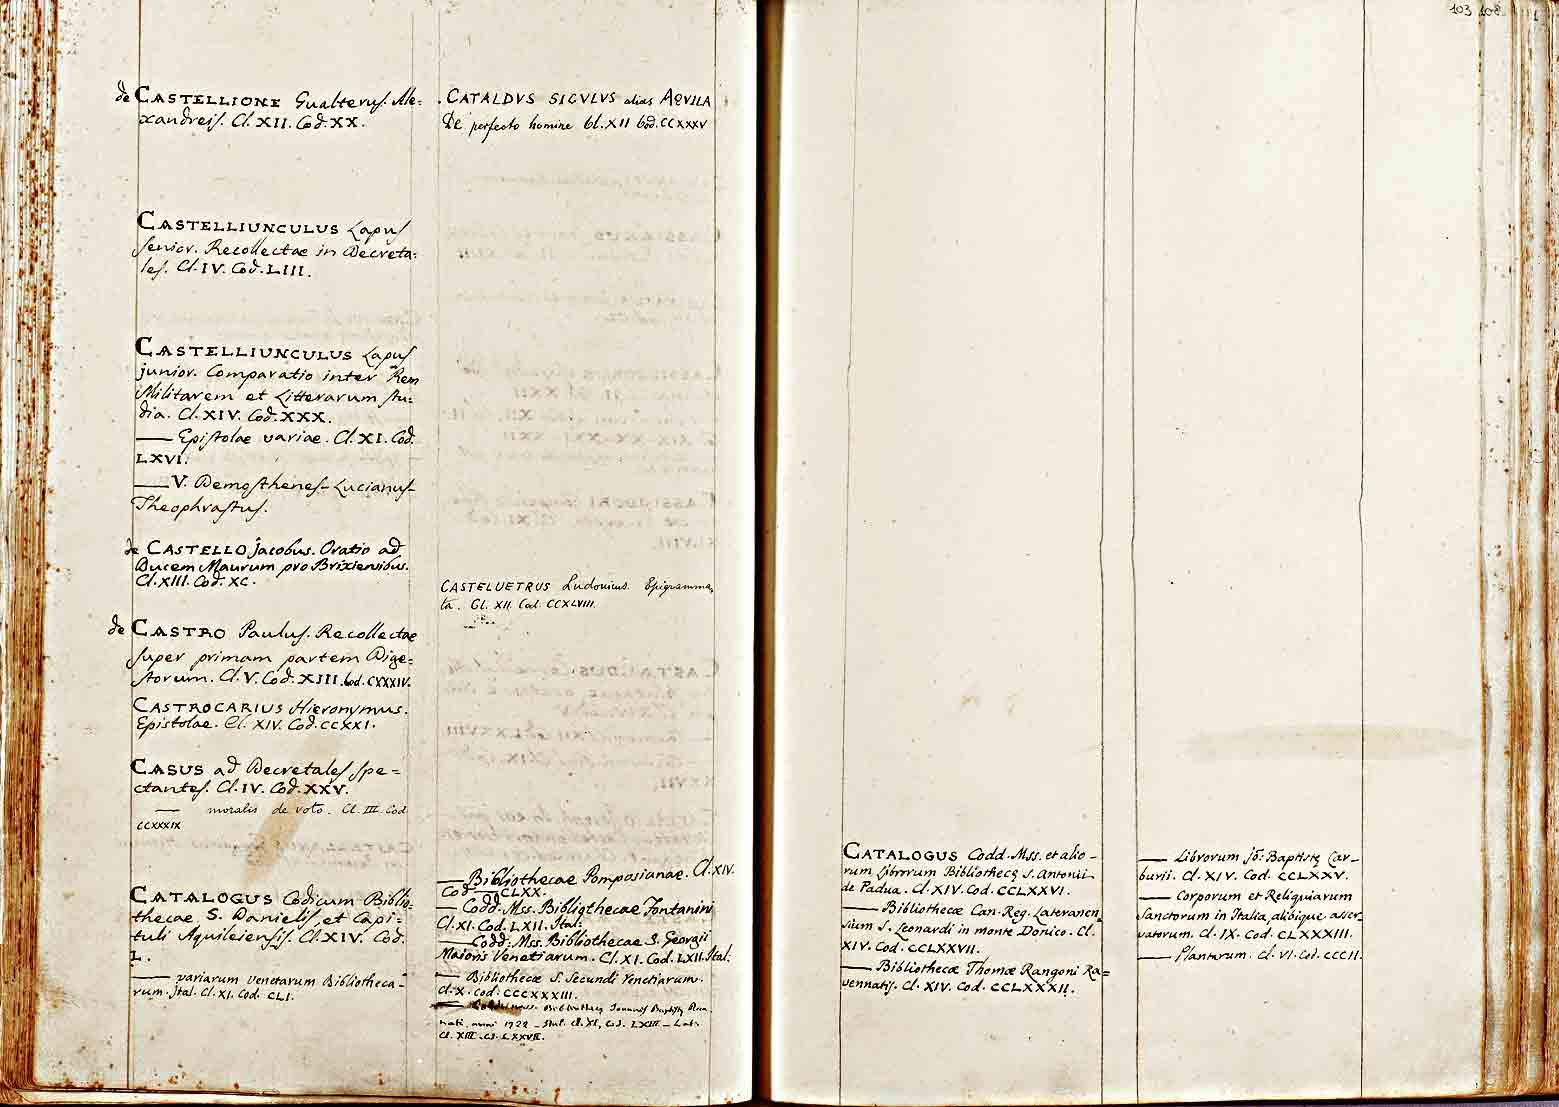 103 108
de CASTELLIONE Gualterus. Ale=
xandreis. Cl. XII. Cod. XX.
CASTELLIUNCULUS Lapus
senior. Recollectae in Decreta=
les. Cl. IV. Cod. LIII.
CASTELLIUNCULUS Lapus
junior. Comparatio inter Rem
Militarem et Litterarum stu=
dia. Cl. XIV. Cod. XXX.
— Epistolae variae. Cl. XI. Cod.
LXVI.
— V. Demosthenes- Lucianus-
Theophrastus.
de CASTELLO Jacobus. Oratio ad
Ducem Maurum pro Brixiensibus.
Cl. XIII. Cod. XC.
de CASTRO Paulus. Recollectae
super primam partem Dige=
storum. Cl. V. Cod. XIII. Cod. CXXXIV.
CASTROCARIUS Hieronymus.
Epistolae. Cl. XIV. Cod. CCXXI.
CASUS ad Decretales spe=
ctantes. Cl. IV. Cod. XXV.
— moralis de voto. Cl. III. Cod.
CCXXXIX
CATALOGUS Codicum Biblio=
thecae S. Danielis, et Capi=
tuli Aquileiensis. Cl. XIV. Cod.
L.
— variarum Venetarum Bibliotheca-
rum. Ital. Cl. XI. Cod. CLI.
. CATALDVS SICVLVS alias AQVILA
De perfecto homine Cl. XII Cod. CCXXXV
CASTELUETRUS Ludouicus. Epigramma,
ta. Cl. XII. Cod. CCXLVIII.
— Bibliothecae Pomposianae. Cl. XIV.
Cod. — CLXX.
— Codd. Mss. Bibliothecae Fontanini
Cl. XI. Cod. LXII. Ital.
— Codd. Mss. Bibliothecae S. Georgii
Maioris Venetiarum. Cl. XI. Cod. LXII. Ital.
— Bibliothecæ S. Secundi Venetiarum.
Cl. X. Cod. CCCXXXIII.
— mss. Bibliothecę Joannis Baptistę Reca
nati, anni 1722 – Ital. Cl. XI, Cod. LXIII – Lat.
Cl. XIII. Cd. LXXVII.
CATALOGUS Codd. Mss. et alio-
rum Librorum Bibliothecę S. Antonii
de Padua. Cl. XIV. Cod. CCLXXVI.
— Bibliothecæ Can. Reg. Lateranen
sium S. Leonardi in monte Donico. Cl.
XIV. Cod. CCLXXVII.
— Bibliothecæ Thomæ Rangoni Ra=
vennatis. Cl. XIV. Cod. CCLXXXII.
— Librorum Jo: Baptistę Car-
burii. Cl. XIV. Cod. CCLXXV.
— Corporum et Reliquiarum
Sanctorum in Italia, alibique asser-
vatorum. Cl. IX. Cod. CLXXXIII.
— Plantarum. Cl. VI. Cod. CCCII.